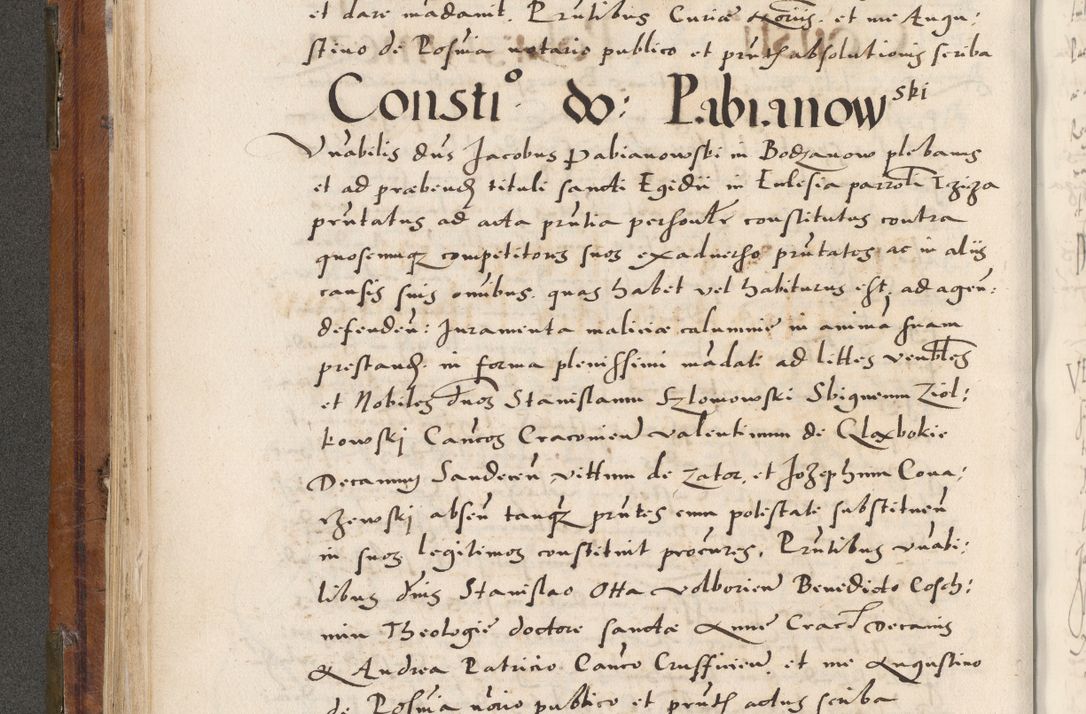 et dare mãdanit. Prñtibus Curiæ Noriis. et me Augu:
stino de Posnia notario publico et prñth absolutionis scriba
Constiᵒ do: Pabianowski
Vñabilis dñs Jacobus Pabianowski in Bodzanow plebanus
et ad præbendã tituli sancti Egidii in Eclesia parroli Izicza
prñtatus ad acta prñtia personlr constitutus contra
quoscunq competitores suos exaduerso prñtatos ac in aliis
causis suis omibus. quas habet vel habiturus est, ad agen:
defendeñ: Juramenta maliciæ calumnie in animã suam
prestandũ. in forma plenissimi mãdati ad littes venbles
et Nobiles dños Stanislaum Szlomowski Sbigneum Ziol:
kowskj Cañcos Cracovien Valentinum de Qlaxbokie
Decanum Sandeceñ Vittum de Zator. et Jozephum Coua:
rzewskj abseñ tanq prñtes cum potestate substitueñ
in suos legitimos constituit procures. Prñtibus vnabi:
libus dñis Stanislao Otta Volborien Benedicto Cosch:
min Theologiæ doctore sanctæ Annæ Crac Decanis
& Andrea Patricio Cañco Crusficien et me Augustino
de Posnia norio publico et prñth actus scriba